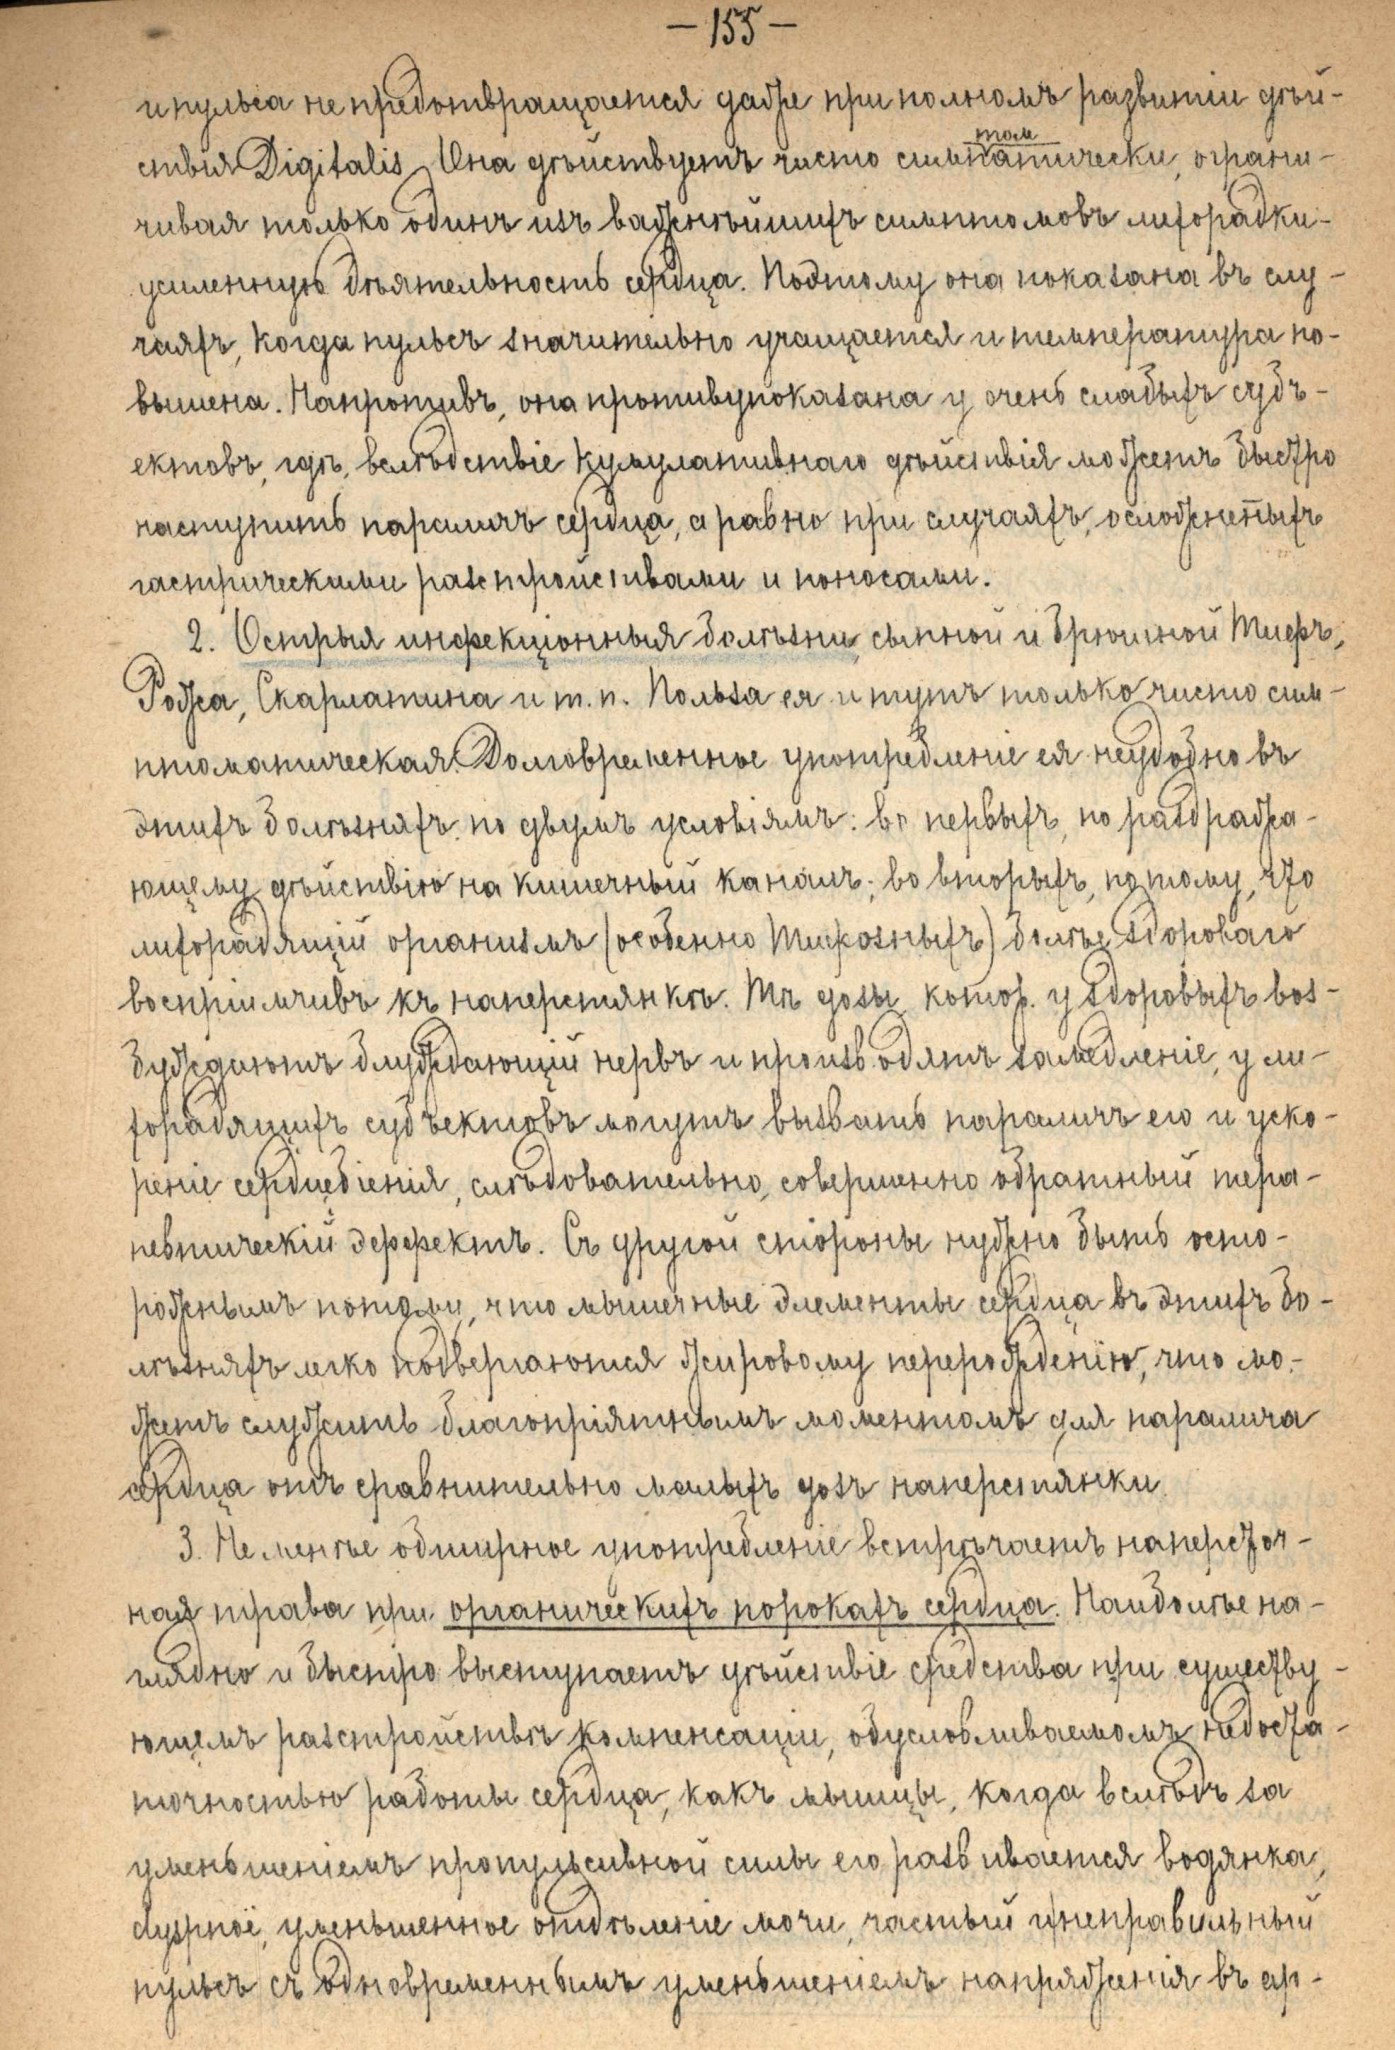 — 155 —
и пульса не предотвращается даже при полномъ развитіи дѣй-
ствия Digitalis. Она дѣйствуетъ чисто симптоматически, ограни-
чивая только одинъ изъ важнѣйшихъ симптомовъ лихорадки-
усиленную дѣятельность сердца. Поэтому она показана въ слу-
чаяхъ, когда пульсъ значительно учащается и температура по-
вышена. Напротивъ, она противупоказана у очень слабыхъ субъ-
ектовъ, гдѣ, вслѣдствіе кумулативнаго дѣйствія можетъ быстро
наступить параличъ сердца, а равно при случаяхъ, осложненныхъ
гастрическими разстройствами и поносами.
2. Острыя инфекціонныя болѣзни, сыпной и брюшной Тифъ,
Рожа, Скарлатина и т. п. Польза ея и тутъ только чисто сим-
птоматическая. Долговременное употребленіе ея неудобно въ
этихъ болѣзняхъ по двумъ условіямъ: во первыхъ, по раздража-
ющему дѣйствію на кишечный каналъ; во вторыхъ, потому, что
лихорадящій организмъ (особенно Тифозныхъ) болѣе здороваго
воспріимчивъ къ наперстянкѣ. Тѣ дозы, котор. у здоровыхъ воз-
буждаютъ блуждающій нервъ и производятъ замедленіе, у ли-
хорадящихъ субъектовъ могутъ вызвать параличъ его и уско-
реніе сердцебіенія, слѣдовательно, совершенно обратный тера-
певтическій эффектъ. Съ другой стороны нужно быть осто-
рожнымъ потому, что мышечные элементы сердца въ этихъ бо-
лѣзняхъ легко подвергаются жировому перерожденію, что мо-
жетъ служить благопріятнымъ моментомъ для паралича
сердца отъ сравнительно малыхъ дозъ наперстянки.
3. Не менѣе обширное употребленіе встрѣчаетъ наперсточ-
ная трава при органическихъ порокахъ сердца. Наиболѣе на-
глядно и быстро выступаетъ дѣйствіе средства при существу-
ющемъ разстройствѣ компенсаціи, обусловливаемомъ недоста-
точностью работы сердца, какъ мышцы, когда вслѣдъ за
уменьшеніемъ пропульсивной силы его развивается водянка,
dyspnoё, уменьшенное отдѣленіе мочи, частый и неправильный
пульсъ съ одновременнымъ уменьшеніемъ напряженія въ ар-